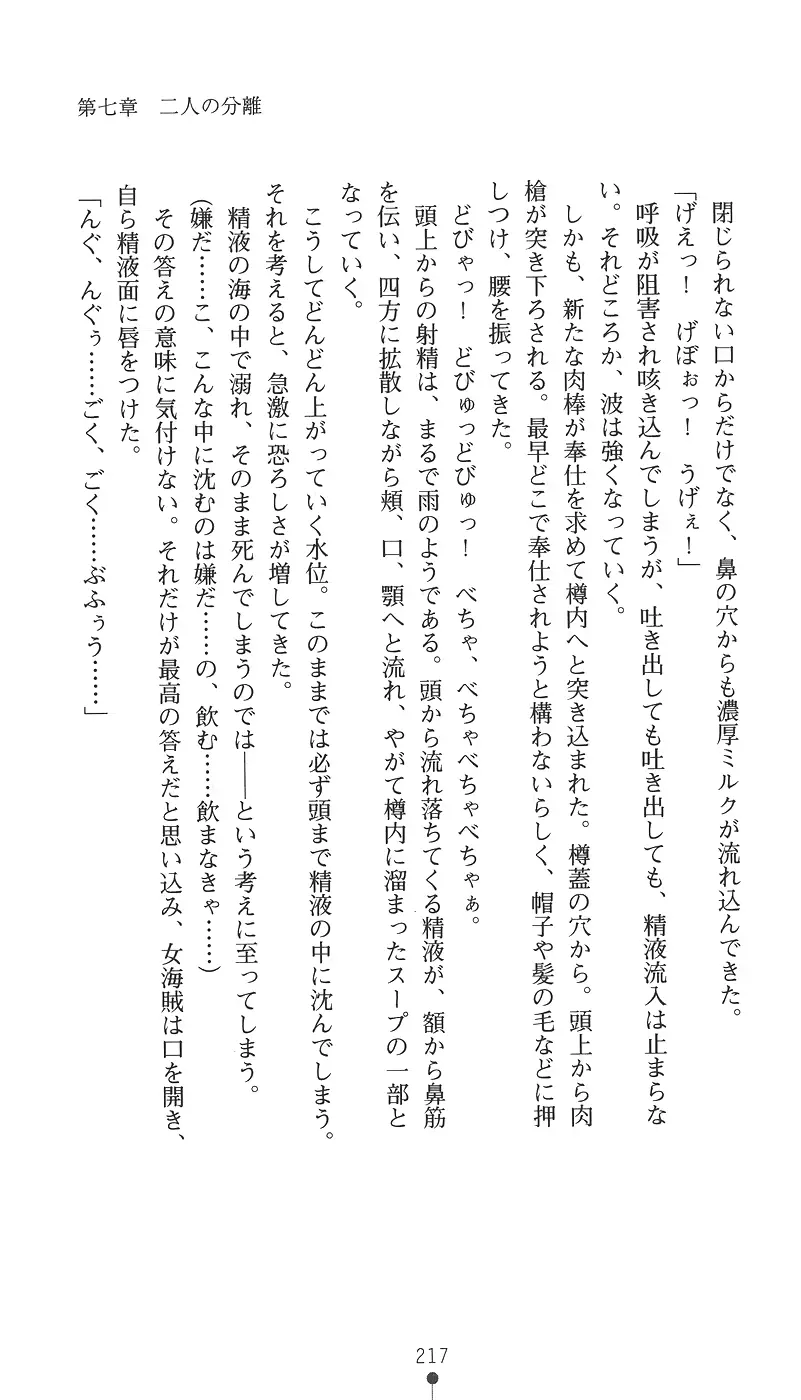 第七章　二人の分離
　閉じられない口からだけでなく、鼻の穴からも濃厚ミルクが流れ込んできた。
「げえっ！　げぼぉっ！　うげぇ！」
　呼吸が阻害され咳き込んでしまうが、吐き出しても吐き出しても、精液流入は止まらな
い。それどころか、波は強くなっていく。
　しかも、新たな肉棒が奉仕を求めて樽内へと突き込まれた。樽蓋の穴から。頭上から肉
槍が突き下ろされる。最早どこで奉仕されようと構わないらしく、帽子や髪の毛などに押
しつけ、腰を振ってきた。
　どびゃっ！　どびゅっどびゅっ！　べちゃ、べちゃべちゃべちゃぁ。
　頭上からの射精は、まるで雨のようである。頭から流れ落ちてくる精液が、額から鼻筋
を伝い、四方に拡散しながら頬、口、顎へと流れ、やがて樽内に溜まったスープの一部と
なっていく。
　こうしてどんどん上がっていく水位。このままでは必ず頭まで精液の中に沈んでしまう。
それを考えると、急激に恐ろしさが増してきた。
　精液の海の中で溺れ、そのまま死んでしまうのでは――という考えに至ってしまう。
（嫌だ……こ、こんな中に沈むのは嫌だ……の、飲む……飲まなきゃ……）
　その答えの意味に気付けない。それだけが最高の答えだと思い込み、女海賊は口を開き、
自ら精液面に唇をつけた。
「んぐ、んぐぅ……ごく、ごく……ぶふぅう……」
217